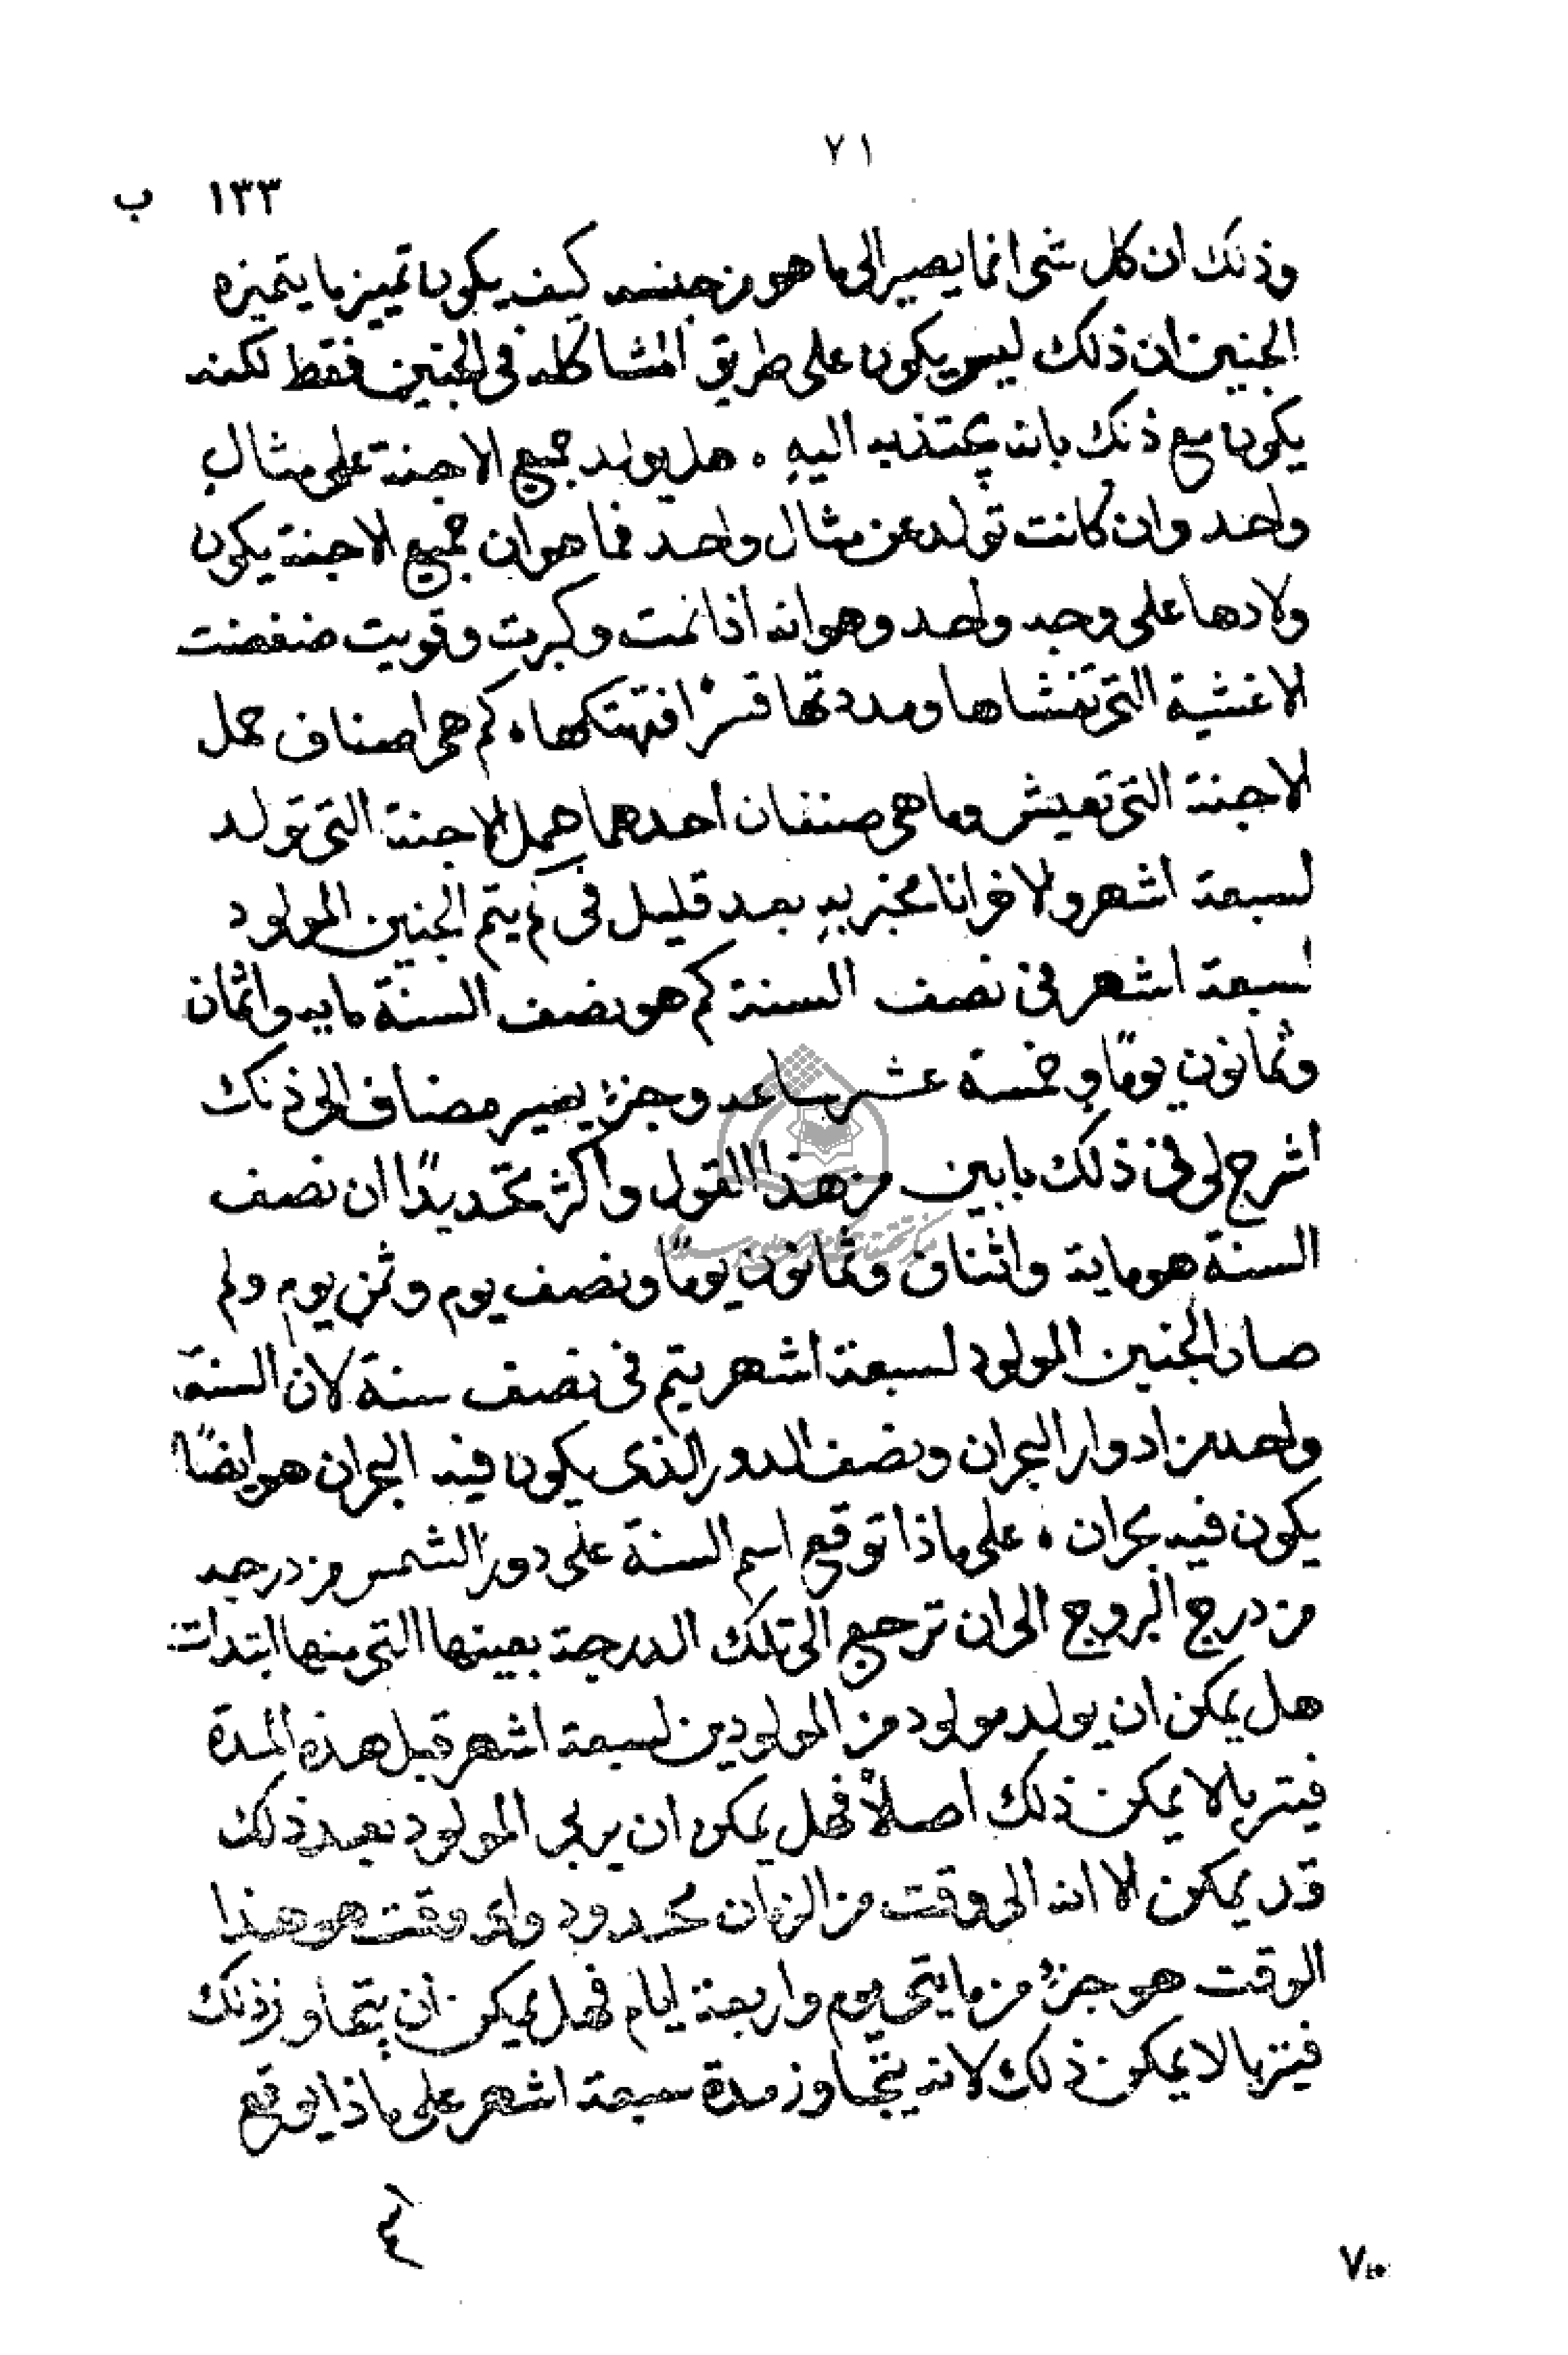 ٧١
١٣٣ ب
وذلك ان كل شى انما يصير الى ما هو من جنسه كيف يكون تميز ما يتميزه
الجنين ان ذلك ليس يكون على طريق المشاكله فى الجنين فقط لكنه
يكون مع ذلك بانه يجتذبه اليه . هل يولد جميع الاجنة على مثال
واحد وان كانت تولد عن مثال واحد فما هو ان جميع الاجنة يكون
ولادها على وجه واحد وهو انه اذا نمت وكبرت وقويت ضغضت
الاغشية التى تغشاها ومددتها قسرًا فتهتكها . كم هى اصناف حمل
الاجنة التى تعيش وما هى صنفان احدهما حمل الاجنة التى تولد
لسبعة اشهر والاخر انا مخبر به بعد قليل فى كم يتم الجنين المولود
لسبعة اشهر فى نصف السنة كم هو نصف السنة مايه واثنان
وثمانون يومًا وخمسة عشر ساعه وجزء يسير مضاف الى ذلك
اشرح لى فى ذلك بابين من هذا القول واكثر تحديدًا ان نصف
السنة هو ماية واثنان وثمانون يومًا ونصف يوم وثمن يوم ولم
صار الجنين المولود لسبعة اشهر يتم فى نصف سنة لان السنة
واحد من ادوار البحران ونصف الدور الذى يكون فيه البحران هو ايضًا
يكون فيه بحران . على ماذا توقع اسم السنة على دور الشمس من درجه
من درج البروج الى ان ترجع الى تلك الدرجة بعينها التى منها ابتدات
هل يمكن ان يولد مولود من المولودين لسبعة اشهر قبل هذه المدة
فيتربا لا يمكن ذلك اصلاً فهل يمكن ان يربى المولود بعد ذلك
قد يمكن الا انه الى وقت من الزمان محدود واى وقت هو هذا
الوقت هو جزء من مايتى يوم واربعة ايام فهل يمكن ان يتجاوز ذلك
فيتربا لا يمكن ذلك لانه يتجاوز مدة سبعة اشهر على ماذا يوقع